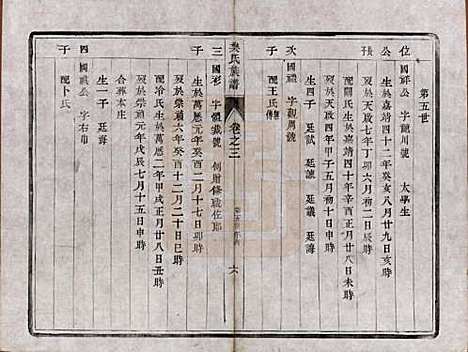 第五世
位 國祥公 字龍川號 太學生
公 生於嘉靖四十二年癸亥八月廿九日亥時
歿於天啟七年丁卯六月初二日辰時
長 配關氏生於嘉靖四十年辛酉正月廿八日戌時
歿於天啟四年甲子五月初十日申時
子 生四子 廷試 廷諫 廷議 廷誨
次 國禎 字觀周號
子 配王氏
樊氏族譜 卷之三 六
三 國彩 字體 號 例贈修職佐郎
生於萬曆元年癸酉二月十七日卯時
歿於崇禎六年癸酉十二月二十日巳時
配冷氏生於萬曆二年甲戌正月廿八日丑時
歿於崇禎元年戊辰七月十五日申時
合葬本庄
子 生一子 廷
四 國禮公 字右
子 配卜氏